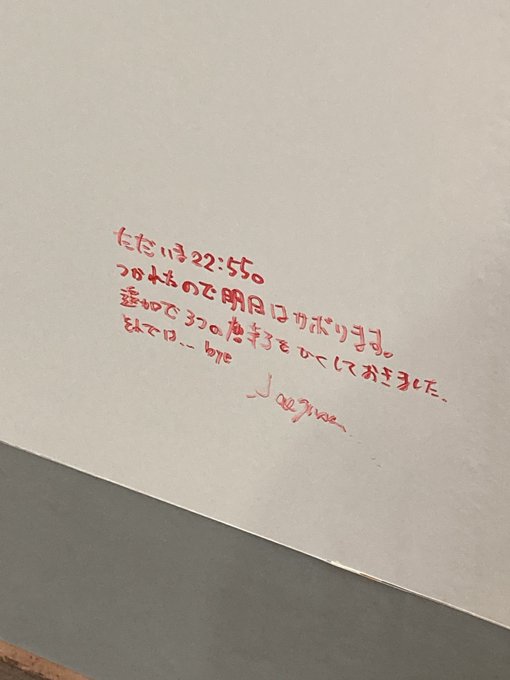 ただいま22:55。
つかれたので明日はサボります。
追加で3つの唐辛子をかくしておきました。
それでは... bye